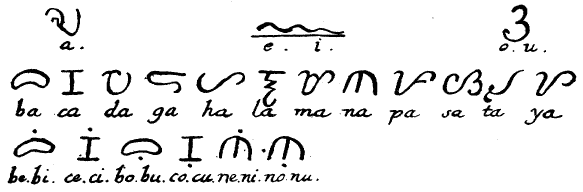 ᜀ ᜁ ᜂ
a. e. i. o. u.
ᜊ ᜃ ᜇ ᜄ ᜑ ᜎ ᜋ ᜈ ᜉ ᜐ ᜆ ᜌ
ba ca da ga ha la ma na pa sa ta ya
ᜊᜒ ᜃᜒ ᜊᜓ ᜃᜓ ᜈᜒ ᜈᜓ
be.bi. ce.ci. bo.bu. co.cu. ne.ni. no.nu.